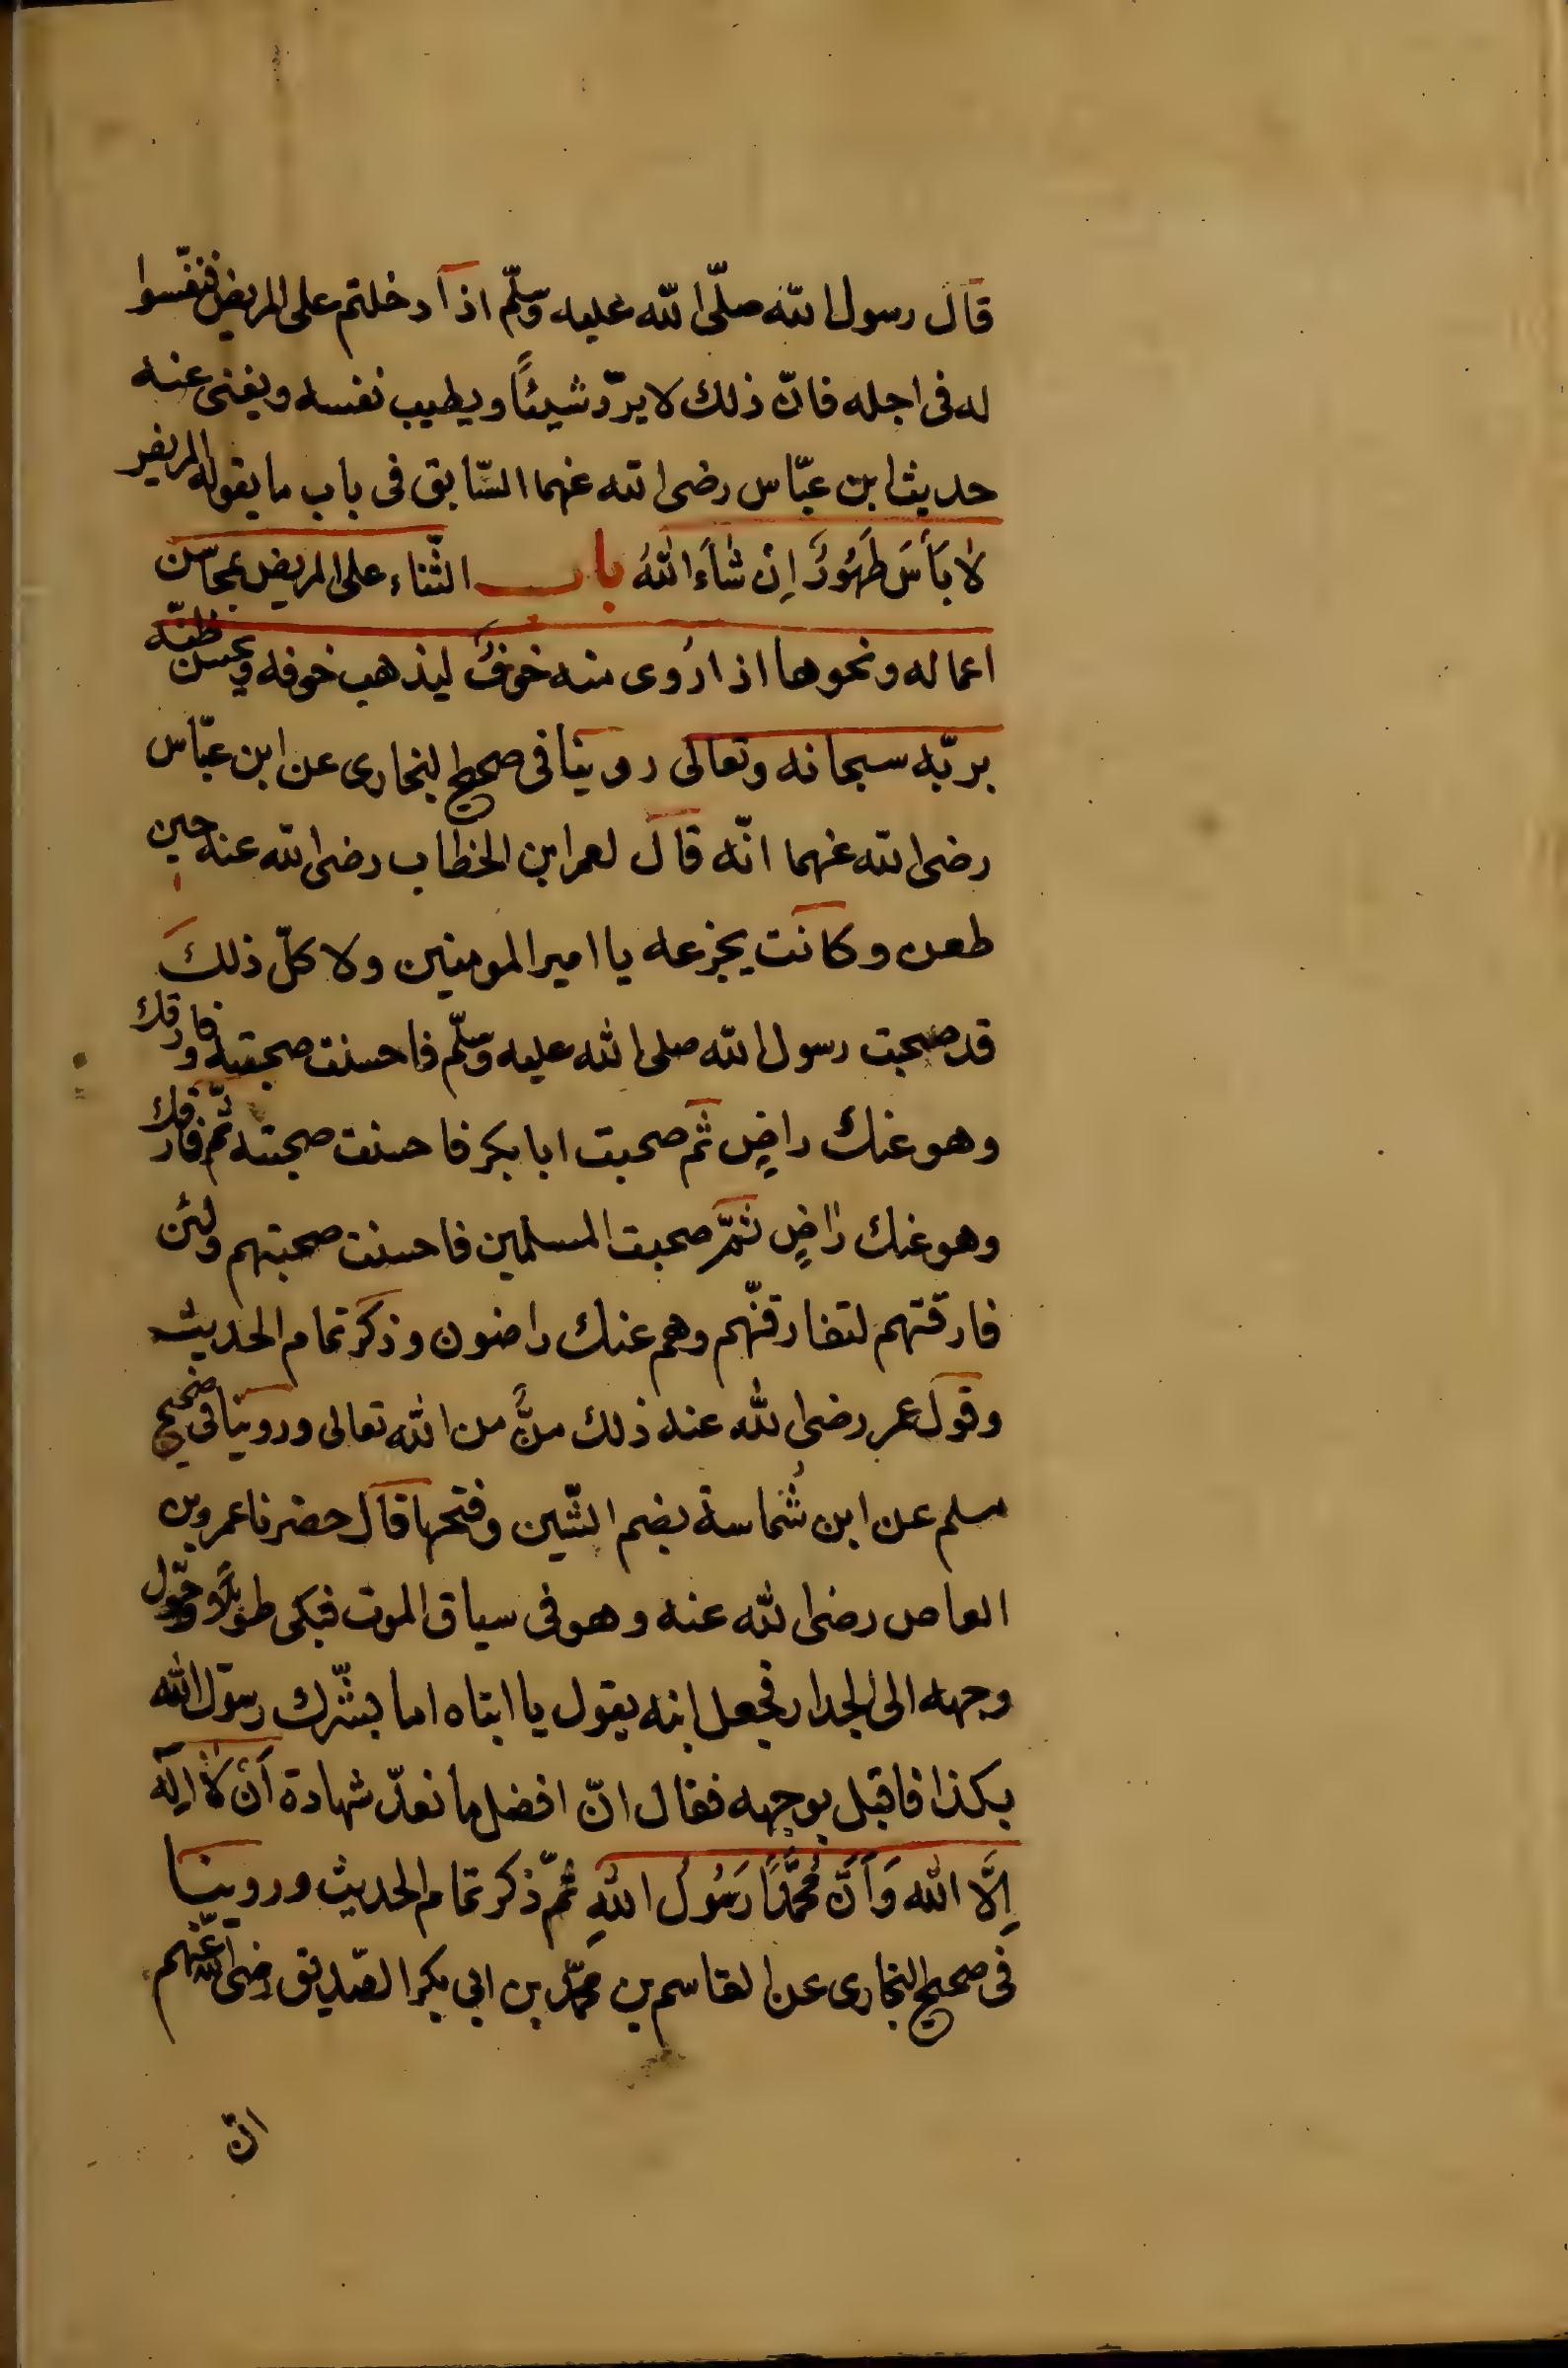 قال رسول الله صلّى الله عليه وسلّم اذا دخلتم على المريض فنفّسوا
له فى اجله فانّ ذلك لا يردّ شيئًا ويطيب نفسه ويغنى عنه
حديث ابن عبّاس رضى الله عنهما السّابق فى باب ما يقوله المريض
لا بَأْسَ طَهُورٌ إِنْ شَآءَ اللهُ باب الثّناء على المريض بمحاسن
اعماله ونحوها اذا رُوى منه خوفٌ ليذهب خوفه ويحسن ظنّه
بربّه سبحانه وتعالى روينا فى صحيح البخارى عن ابن عبّاس
رضى الله عنهما انّه قال لعمر ابن الخطاب رضى الله عنه حين
طعن وكانت يجزعه يا امير المومنين ولا كلّ ذلك
قد صحبت رسول الله صلى الله عليه وسلّم فاحسنت صحبته وفارقك
وهو عنك راضٍ ثم صحبت ابا بكر فاحسنت صحبته ثمّ فارقك
وهو عنك راضٍ ثمّ صحبت المسلمين فاحسنت صحبتهم ولئن
فارقتهم لتفارقنّهم وهم عنك راضون وذكر تمام الحديث
وقول عمر رضى الله عنه ذلك منٌّ من الله تعالى وروينا فى صحيح
مسلم عن ابن شُماسة بضم الشّين وفتحها قال حضرنا عمرو بن
العاص رضى الله عنه وهو فى سياق الموت فبكى طويلًا وحوّل
وجهه الى الجدار فجعل ابنه يقول يا ابتاه اما بشّرك رسول الله
بكذا فاقبل بوجهه فقال انّ افضل ما نعدّ شهادة أَنْ لَا إِلَهَ
إِلَّا الله وَأَنَّ مُحَمَّدًا رَسُولُ اللهِ ثمّ ذكر تمام الحديث وروينا
فى صحيح البخارى عن القاسم بن محمّد بن ابي بكر الصّديق رضى الله عنهم
انّ